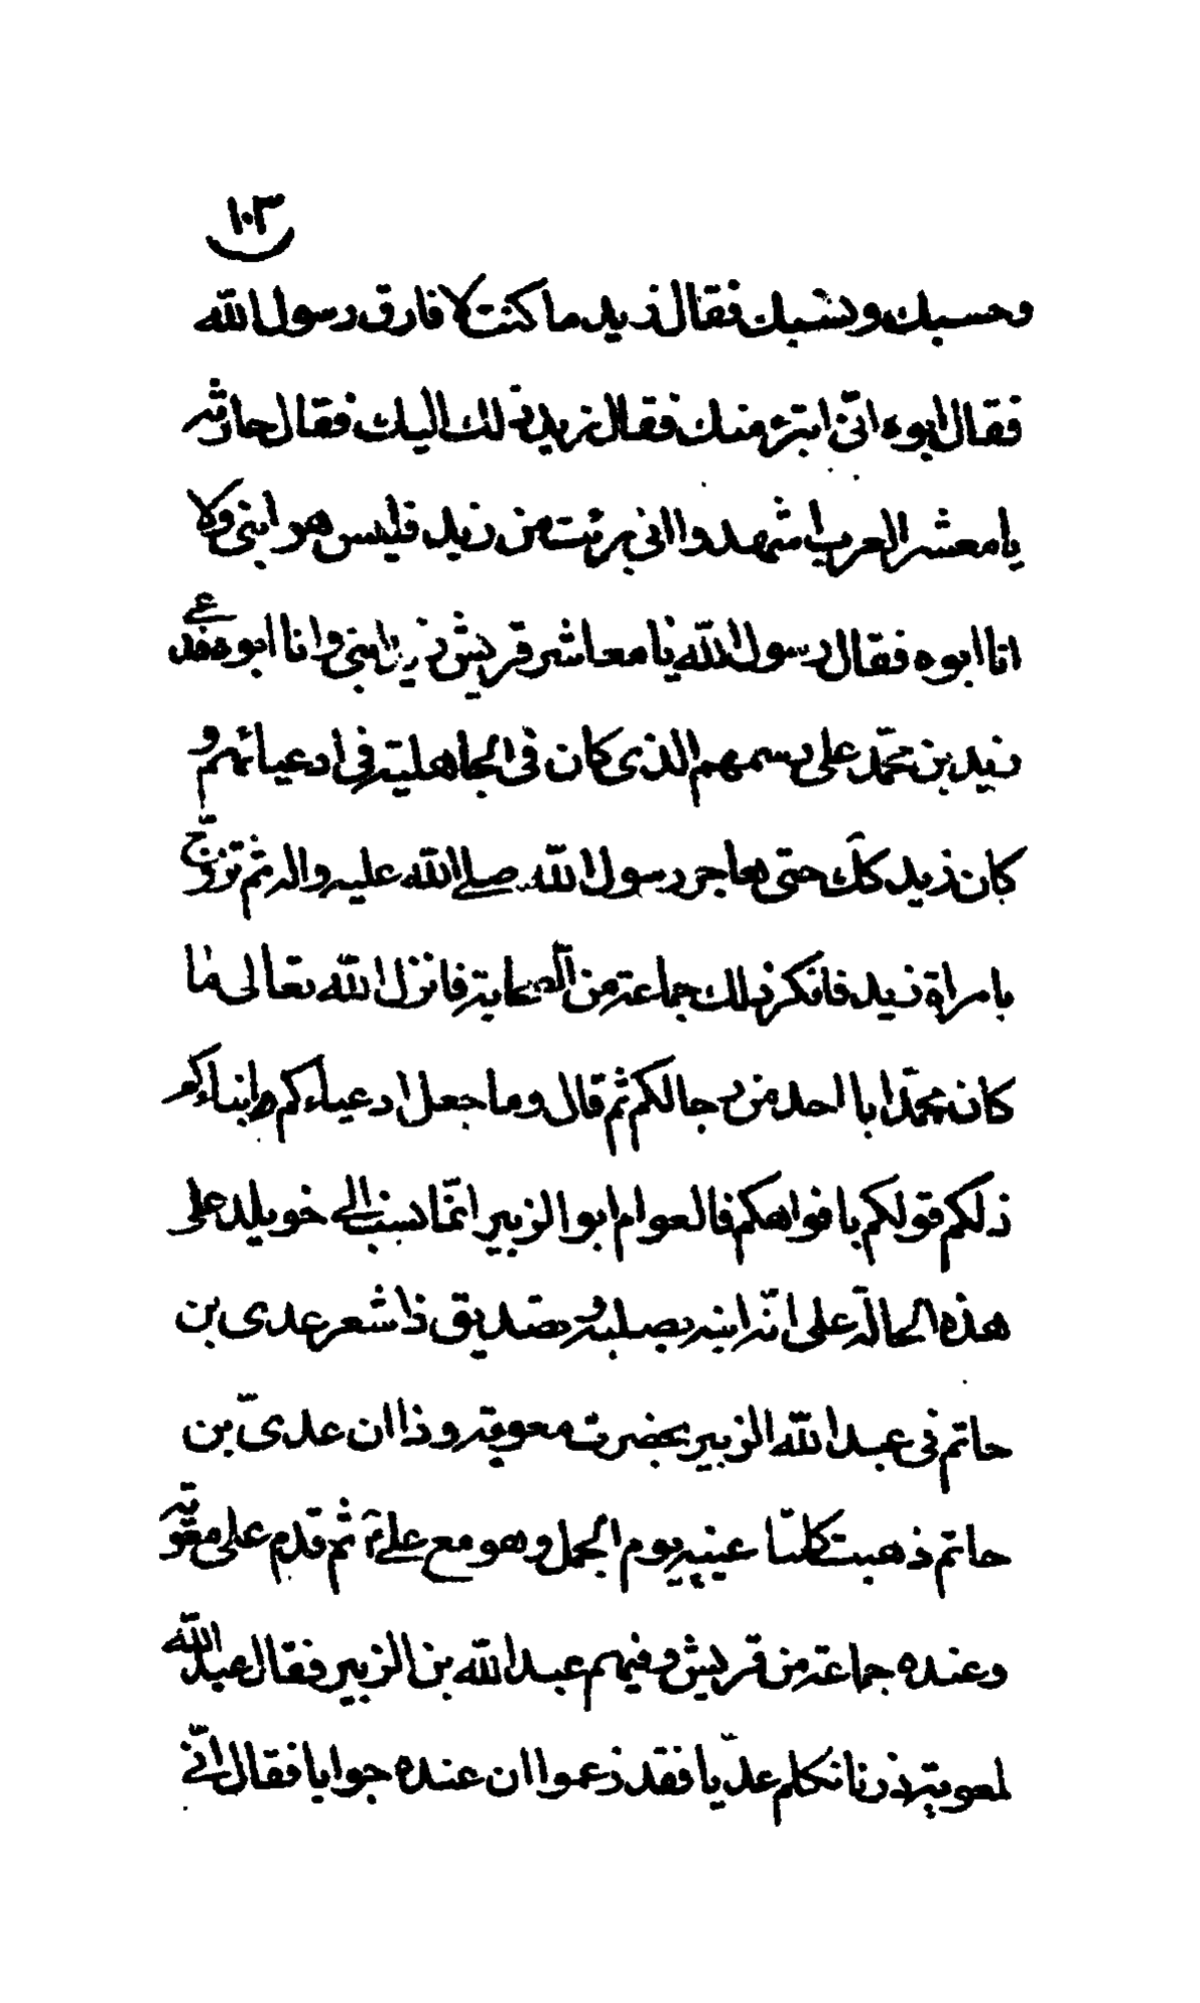 ١٠٣
وحسبك ونسبك فقال زيد ما كنت لا فارق رسول الله
فقال ابوه انى ابترء منك فقال زيد ذلك اليك فقال حارثه
يا معشر العرب اشهدوا انى برئت من زيد فليس هو ابنى ولا
انا ابوه فقال رسول الله يا معاشر قريش زيد ابنى وانا ابوه فدعى
زيد بن محمّد على رسمهم الذى كان فى الجاهلية فى ادعيائهم و
كان زيد كك حتى هاجر رسول الله صلى الله عليه واله ثم تزوّج
بامراة زيد فانكر ذلك جماعة من الصحابة فانزل الله تعالى ما
كان محمّد ابا احد من رجالكم ثم قال وما جعل ادعياءكم ابناءكم
ذلكم قولكم بافواهكم فالعوام ابو الزبير انّما نسب الى خويلد على
هذه الحالة على انّه ابنه بصلبه وتصديق ذا شعر عدى بن
حاتم فى عبد الله الزبير بحضرت معوية وذا ان عدىّ بن
حاتم ذهبت كلتا عينيه يوم الجمل وهو مع علىّ ثم قدم على معوية
وعنده جماعة من قريش وفيهم عبد الله بن الزبير فقال عبد الله
لمعوية ذرنا نكلم عديّا فقد زعموا ان عنده جوابا فقال انّى